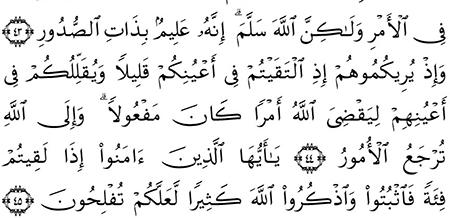 فِى ٱلْأَمْرِ وَلَـٰكِنَّ ٱللَّهَ سَلَّمَ ۗ إِنَّهُۥ عَلِيمٌۢ بِذَاتِ ٱلصُّدُورِ ﴿٤٣﴾
وَإِذْ يُرِيكُمُوهُمْ إِذِ ٱلْتَقَيْتُمْ فِىٓ أَعْيُنِكُمْ قَلِيلًا وَيُقَلِّلُكُمْ فِىٓ
أَعْيُنِهِمْ لِيَقْضِىَ ٱللَّهُ أَمْرًا كَانَ مَفْعُولًا ۗ وَإِلَى ٱللَّهِ
تُرْجَعُ ٱلْأُمُورُ ﴿٤٤﴾ يَـٰٓأَيُّهَا ٱلَّذِينَ ءَامَنُوٓا۟ إِذَا لَقِيتُمْ
فِئَةً فَٱثْبُتُوا۟ وَٱذْكُرُوا۟ ٱللَّهَ كَثِيرًا لَّعَلَّكُمْ تُفْلِحُونَ ﴿٤٥﴾